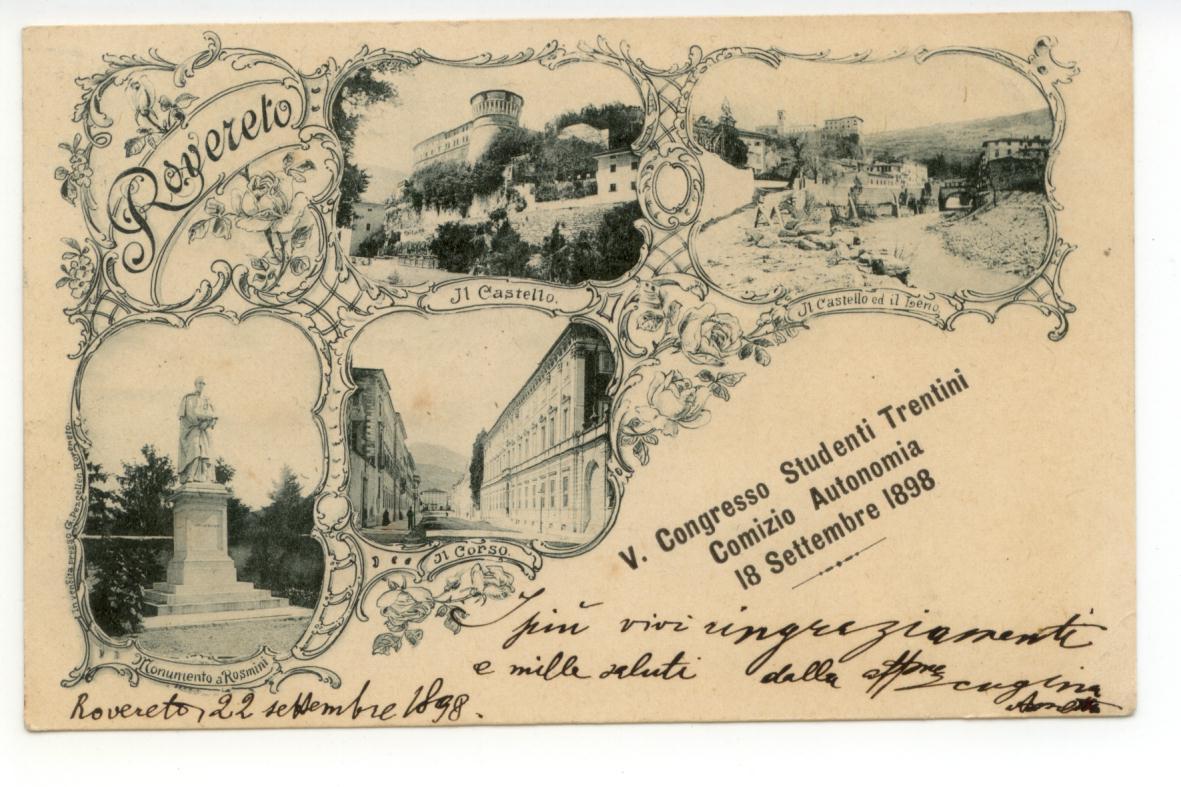 Rovereto
Il Castello.
Il Castello ed il Leno.
In vendita presso G. Rovereto.
Monumento a Rosmini
Il Corso.
V. Congresso Studenti Trentini
Comizio Autonomia
18 Settembre 1898
I più vivi ringraziamenti
e mille saluti dalla cugina
Rovereto, 22 settembre 1898.